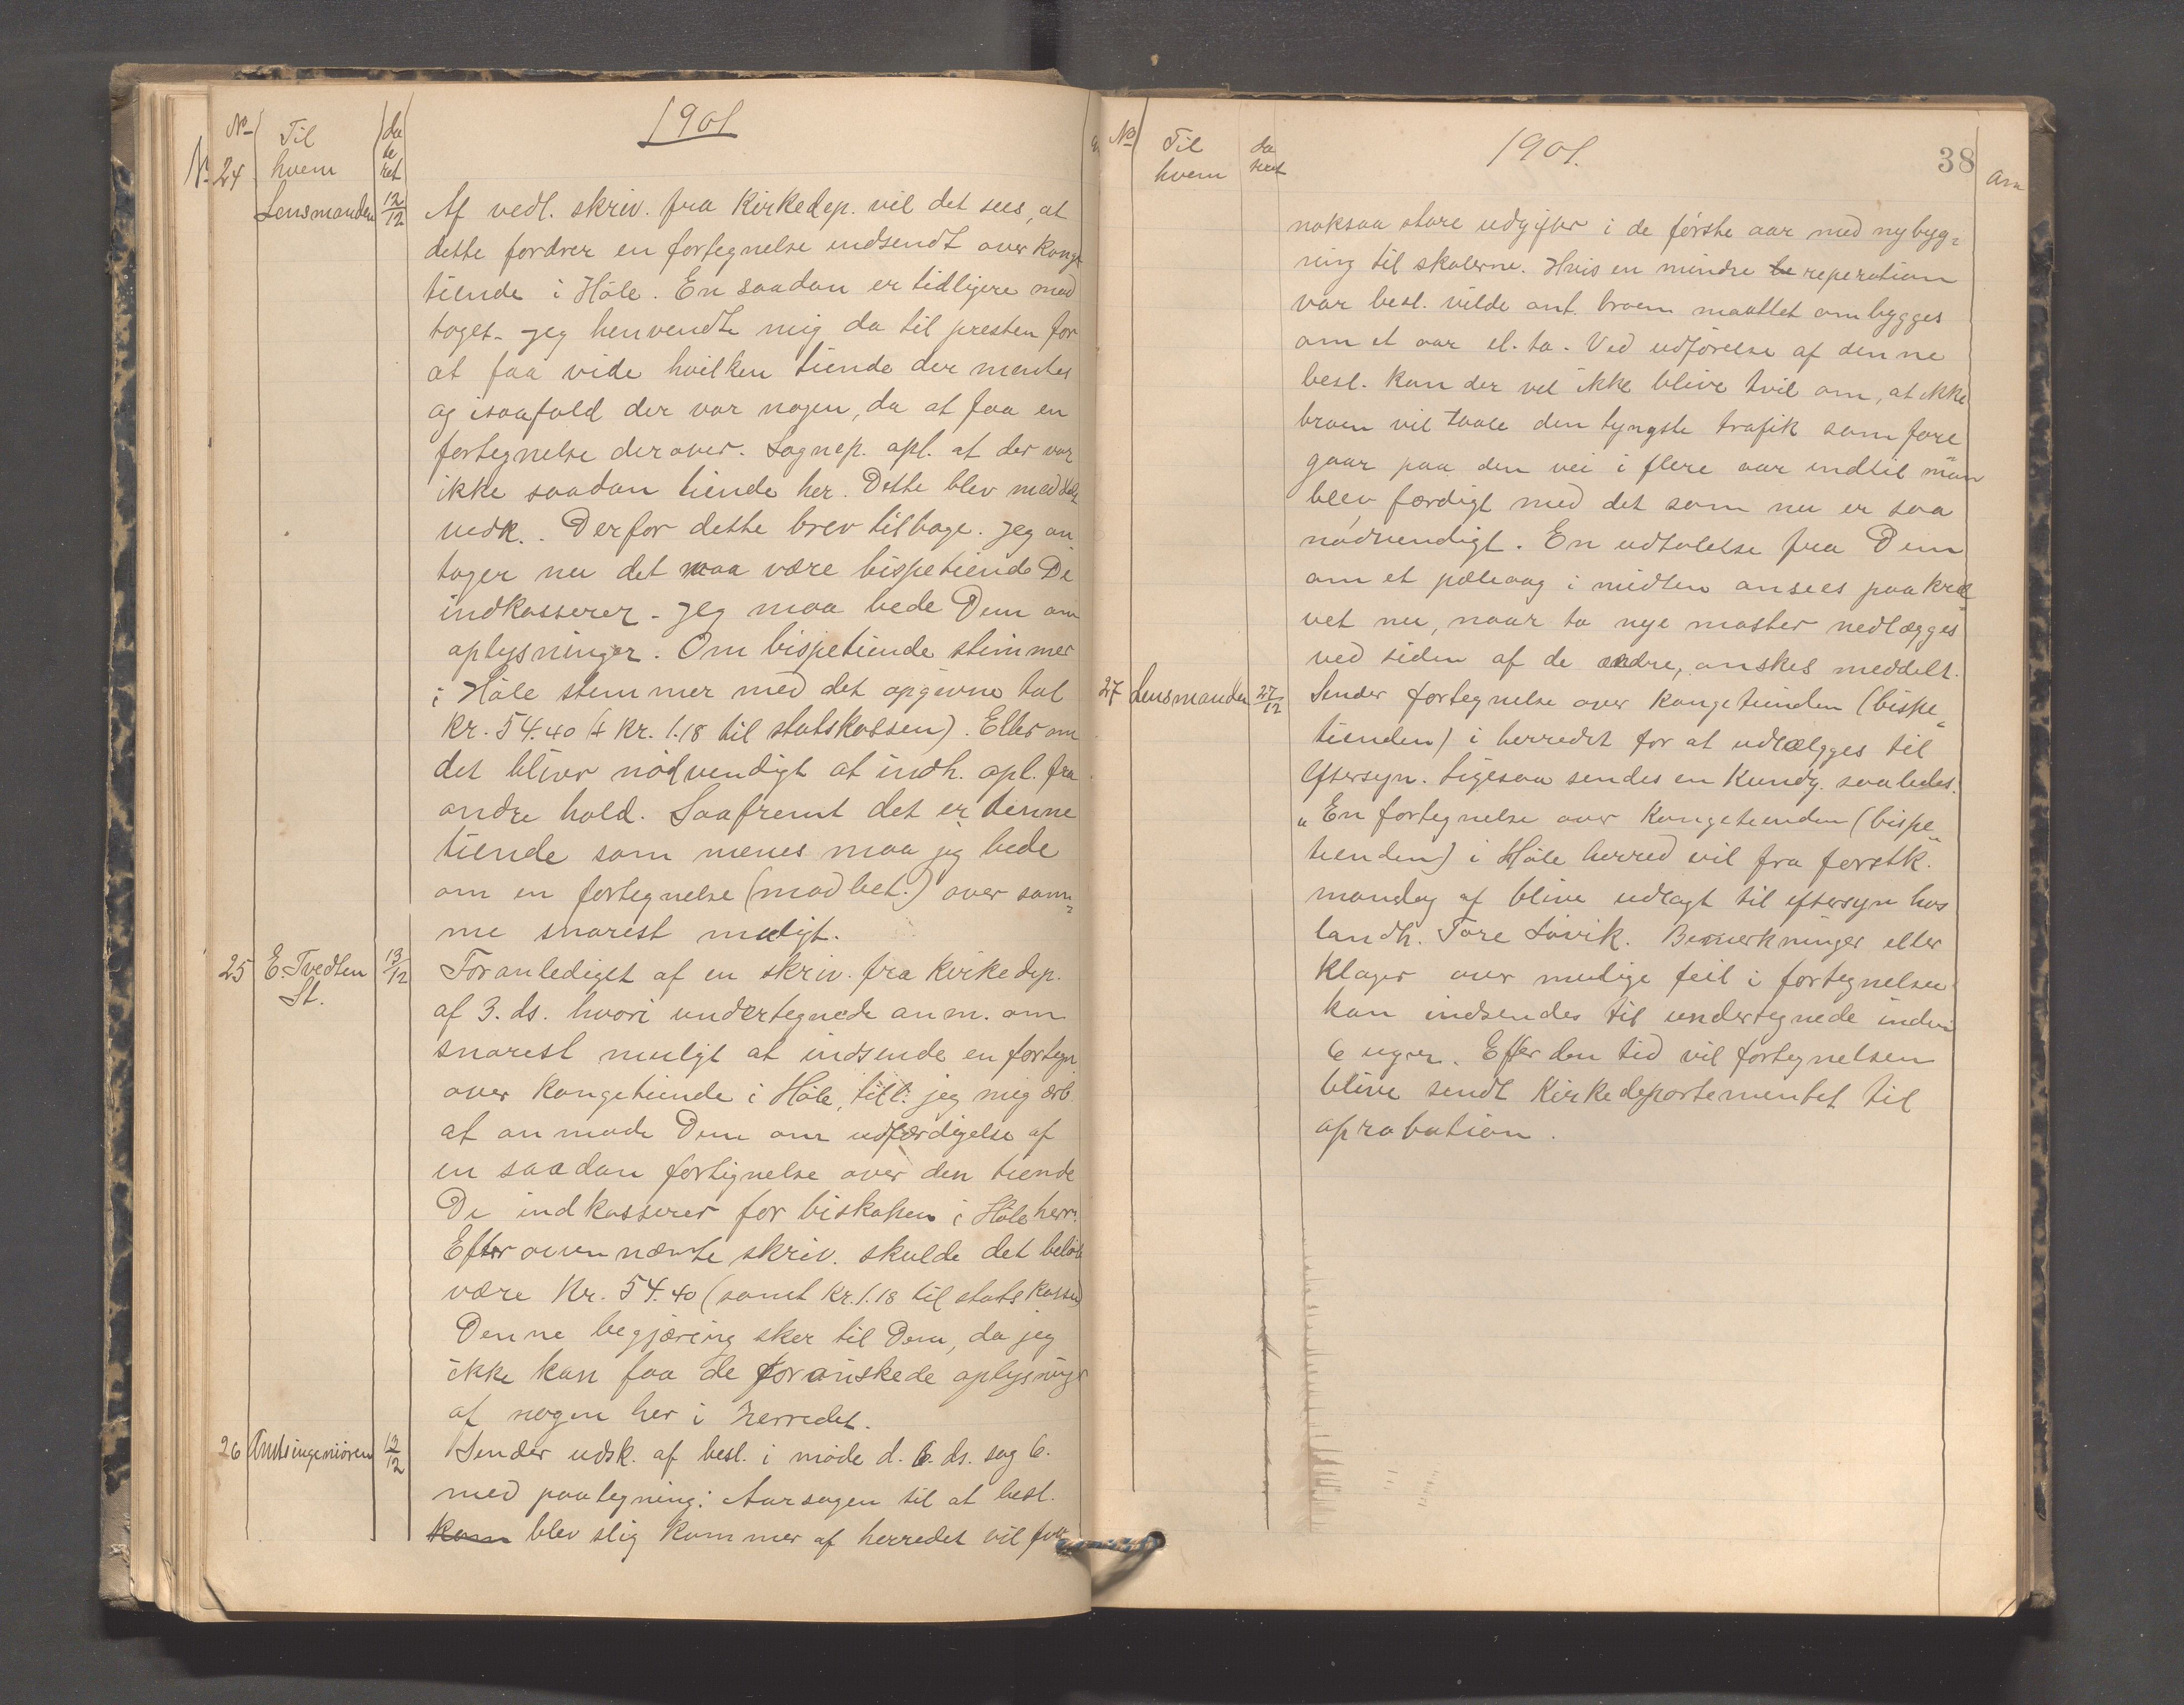 1901
No Til hvem dateret
No. 24 Lensmanden 12/12 Af vedl. skriv. fra Kirkedep. vil det sees, at
dette fordrer en fortegnelse indsendt over konge
tiende i Höle. En saadan er tidligere mod
taget. Jeg henvendte mig da til presten for
at faa vide hvilken tiende der mentes
og isaafald der var nogen, da at faa en
fortegnelse derover. Sognep. opl. at der var
ikke saadan tiende her. Dette blev meddelt
vedk.. Derfor dette brev tilbage. Jeg an
tager nu det maa være bispetiende De
indkasserer. Jeg maa bede Dem om
oplysninger. Om bispetiende stimmer
i Höle stemmer med det opgivne tal
kr. 54.40 (+ kr. 1.18 til statskassen). Eller om
det bliver nödvendigt at indh. opl. fra
andre hold. Saafremt det er denne
tiende som menes maa jeg bede
om en fortegnelse (mod bet.) over sam=
me snarest muligt.
25 E. Tvedten St. 13/12 Foranlediget af en skriv. fra Kirkedep.
af 3. ds. hvori undertegnede anm. om
snarest muligt at indsende en fortegn
over kongetiende i Höle, till. jeg mig ærb.
at anmode Dem om udfærdigelse af
en saadan fortignelse over den tiende
De indkasserer for biskopen i Höle herr.
Efter ovennævnte skriv. skulde det belöb
være Kr. 54.40 (samt kr. 1.18 til statskassen)
Denne begjæring sker til Dem, da jeg
ikke kan faa de forönskede oplysninger
af nogen her i herredet.
26 Amtsingeniören 13/12 Sender udsk. af besl. i möde d. 6. ds. sag 6.
med paategning: Aarsagen til at besl.
kom blev slig kommer af herredet vil faa
1901.
38
No Til hvem dateret
noksaa store udgifter i de förste aar med nybyg=
ning til skolerne. Hvis en mindre be reperation
var besl. vilde ant. broen maattet ombygges
om et aar el. to. Ved udförelse af denne
besl. kan der vel ikke blive tvil om, at ikke
broen vil taale den tyngste trafik som fore
gaar paa den vei i flere aar indtil man
blev færdigt med det som nu er saa
nödvendigt. En udtalelse fra Dem
om et pæleaag i midten ansees paakræ
vet nu, naar to nye master nedlægges
ved siden af de andre, önskes meddelt.
27 Lensmanden 27/12 Sender fortegnelse over kongetienden (bispe=
tienden) i herredet for at udlægges til
eftersyn. Ligesaa sendes en Kundg. saaledes:
"En fortegnelse over Kongetienden (bispe=
tienden) i Höle herred vil fra förstk.
mandag af blive udlagt til eftersyn hos
landh. Tore Lövik. Bemerkninger eller
klager over mulige feil i fortegnelsen
kan indsendes til undertegnede inden
6 uger. Efter den tid vil fortegnelsen
blive sendt Kirkedepartementet til
aprobation.